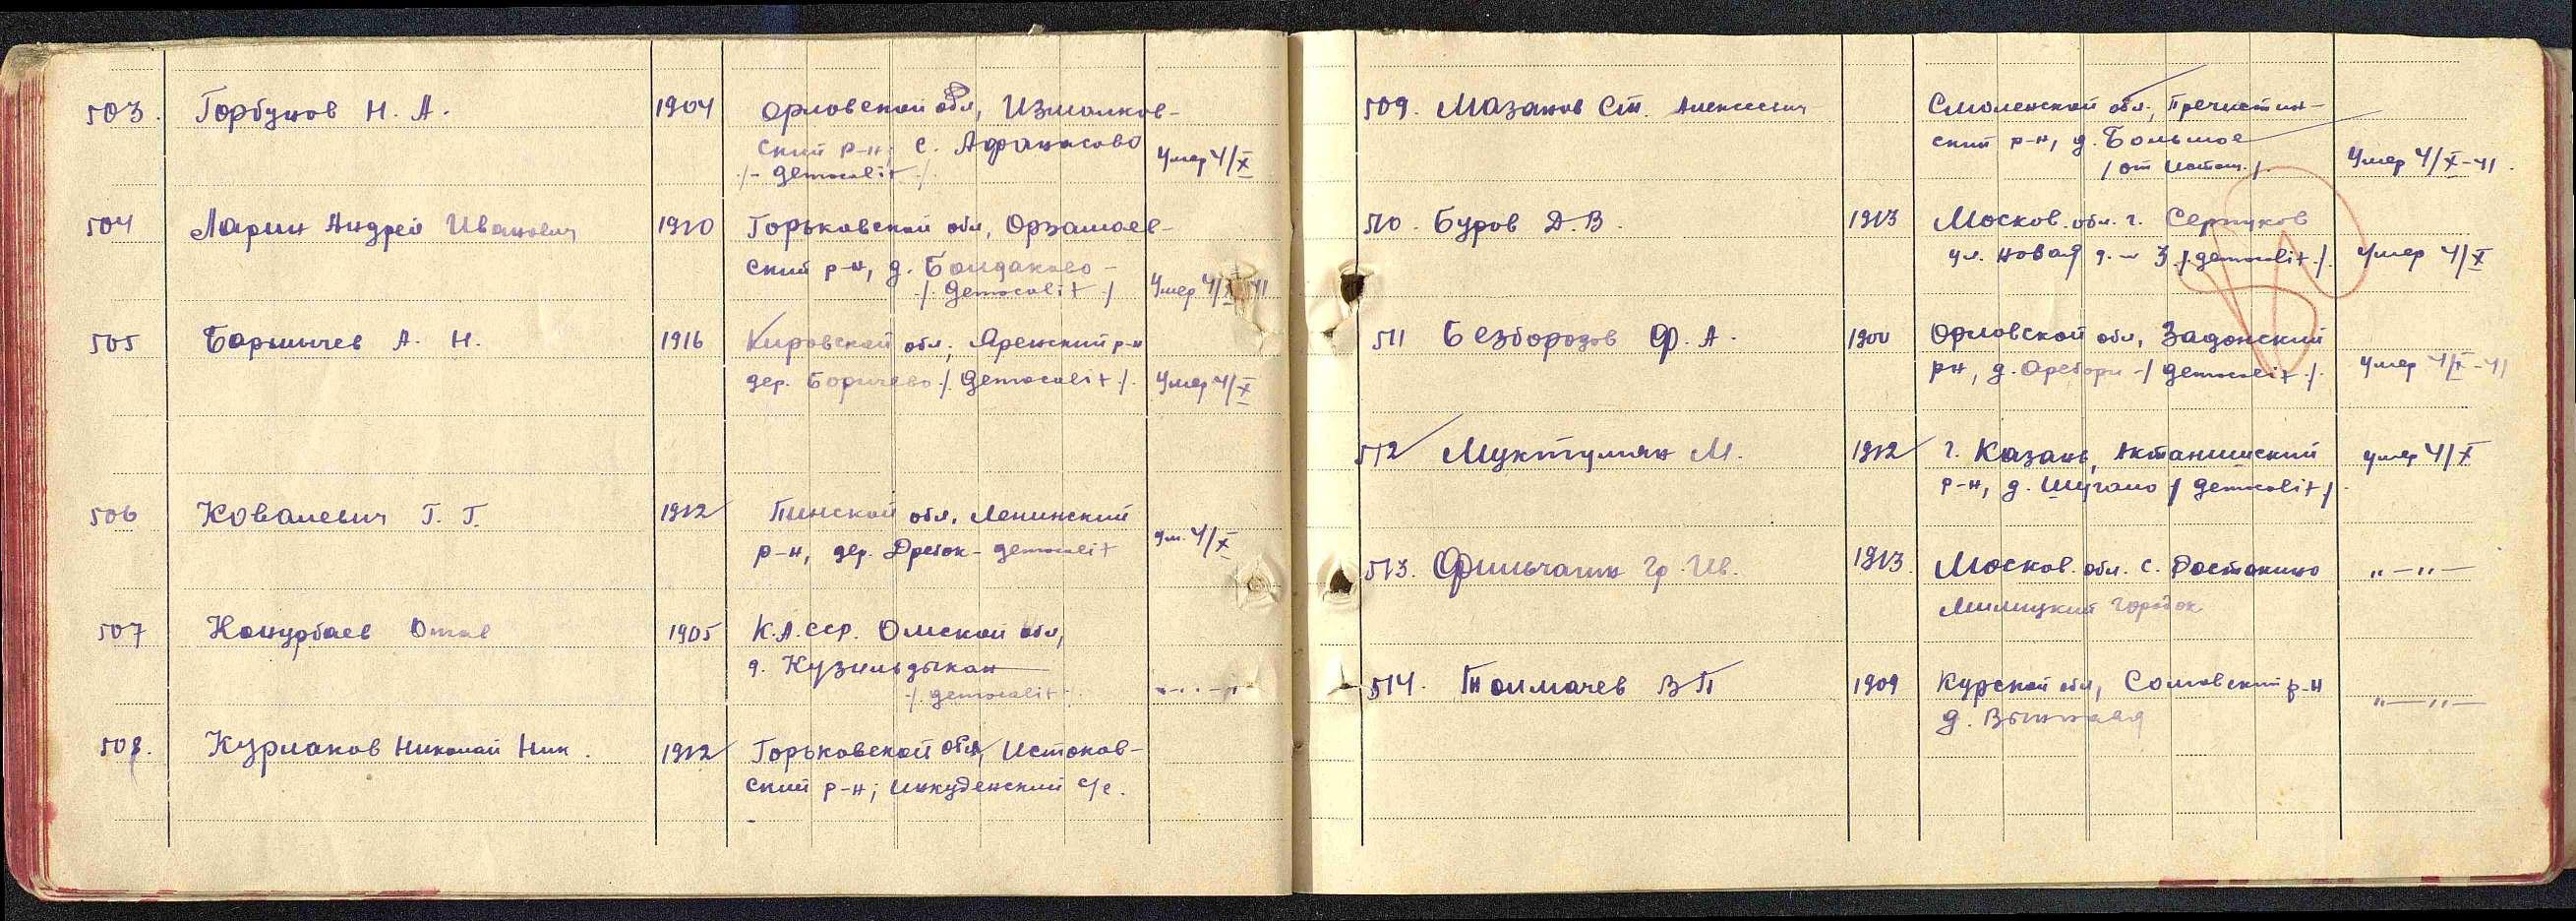 503. Горбунов Н. А. 1904 Орловской обл, Измалков-
ский р-н; с. Афанасово Умер 4/X
/- gemocolit -/
504 Ларин Андрей Иванович 1920 Горьковской обл, Орзамаев-
ский р-н, д. Бондаково -
/. gemocolit -/ Умер 4/X 41
505 Барышчев А. Н. 1916 Кировской обл; Яренский р-н
дер. Боричево /. gemocolit -/. Умер 4/X
506 Ковалевич Г. Г. 1922 Пинской обл. Ленинский
р-н, дер. - gemocolit Ум. 4/X
507 Конурбаев 1905 К.А.сср. Омской обл,
д. Кузильдыкан
-/. gemocolit -/. " - " -
508. Курлаков Николай Ник. 1922 Горьковской обл, Истоков-
ский р-н; Инкуденский с/с.
509. Мазанов Ст. Алексеевич Смоленской обл; Пречистин-
ский р-н, д. Большое
/ от истощ. /. Умер 4/X-41.
510. Буров Д. В. 1913 Москов. обл. г. Серпуков
ул. новая д. 3 /. gemocolit -/. Умер 4/X
511 Безбородов Ф. А. 1900 Орловской обл, Задонский
рн, д. -/ gemocolit -/. Умер 4/X-41
512 Муктумян М. 1922 г. Казань, Актанишский
р-н, д. Шугано / gemocolit /. Умер 4/X
513. Финьчагин Гр. Ив. 1913. Москов. обл. с. Ростокино " - " -
Милицкий городок
514. Толмачев В П 1909 Курской обл, Солнцевский р-н " - " -
д.